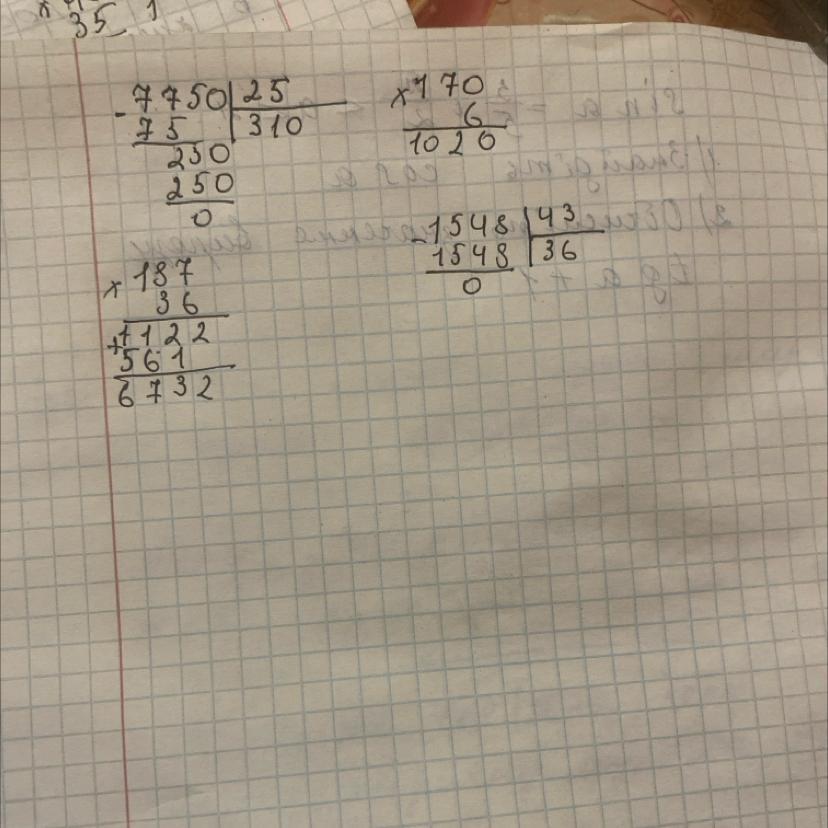 35 1
- 7750 | 25
75 | 310
250
250
0
x 170
6
1020
- 1548 | 43
1548 | 36
0
x 187
36
+ 1122
561
6732